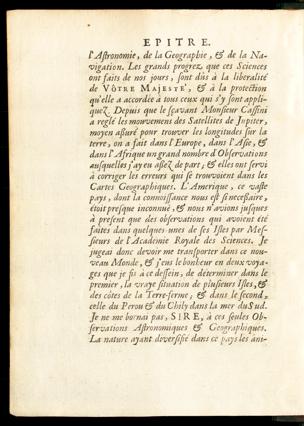 EPITRE.
l'Astronomie, de la Geographie, & de la Na-
vigation. Les grands progrez que ces Sciences
ont faits de nos jours, sont dûs à la liberalité
de VÔTRE MAJESTE', & à la protection
qu'elle a accordée à tous ceux qui s'y sont appli-
quez. Depuis que le sçavant Monsieur Cassini
a reglé les mouvemens des Satellites de Jupiter,
moyen assuré pour trouver les longitudes sur la
terre, on a fait dans l'Europe, dans l'Asie, &
dans l'Afrique un grand nombre d'Observations
ausquelles j'ay eu assez de part; & elles ont servi
à corriger les erreurs qui se trouvoient dans les
Cartes Geographiques. L'Amerique, ce vaste
pays, dont la connoissance nous est si necessaire,
étoit presque inconnuë, & nous n'avions jusques
à present que des observations qui avoient été
faites dans quelques unes de ses Isles par Mes-
sieurs de l'Academie Royale des Sciences. Je
jugeai donc devoir me transporter dans ce nou-
veau Monde, & j'eus le bonheur en deux voya-
ges que je fis à ce dessein, de determiner dans le
premier, la vraye situation de plusieurs Isles, &
des côtes de la Terre-ferme; & dans le second,
celle du Perou & du Chily dans la mer du Sud.
Je ne me bornai pas, SIRE, à ces seules Ob-
servations Astronomiques & Geographiques.
La nature ayant diversifié dans ce pays les ani-